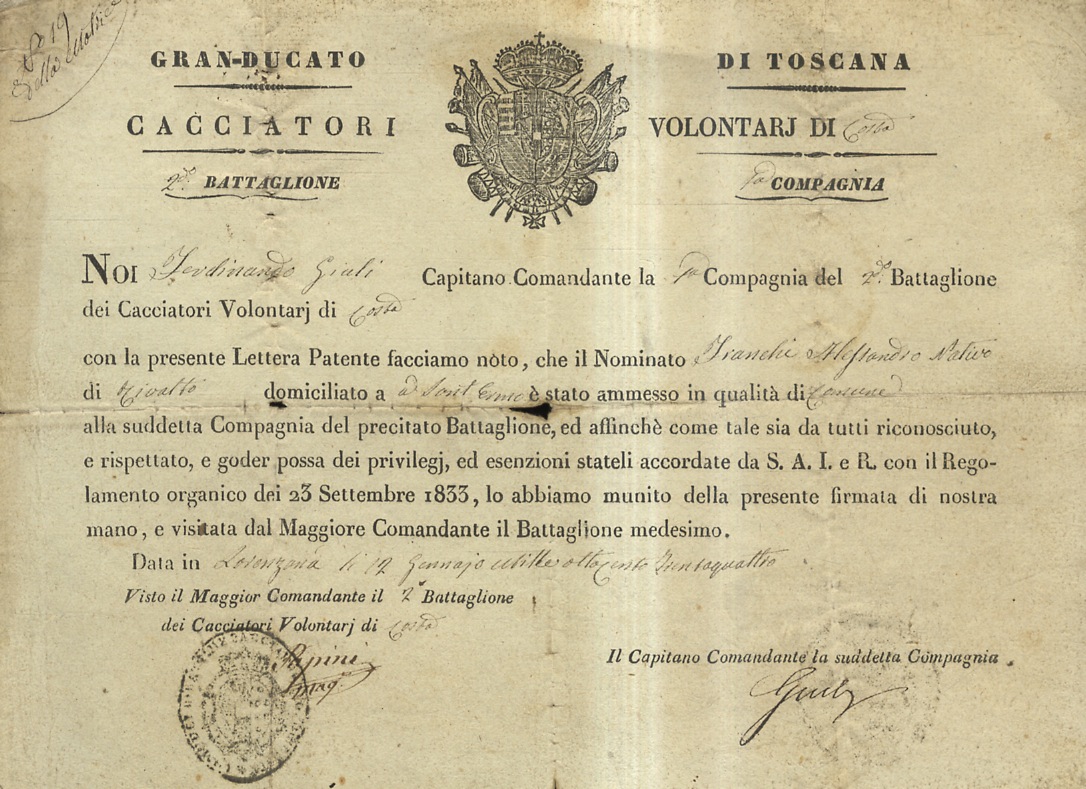 No 19
Della Matrice
GRAN-DUCATO DI TOSCANA
CACCIATORI VOLONTARJ DI Costa
2do. BATTAGLIONE 1a COMPAGNIA
NOI Ferdinando Giuli Capitano Comandante la 1a Compagnia del 2do. Battaglione
dei Cacciatori Volontarj di Costa
con la presente Lettera Patente facciamo nòto, che il Nominato Franchi Alessandro Nativo
di Rivalto domiciliato a a Sant Ermo è stato ammesso in qualità di Comune
alla suddetta Compagnia del precitato Battaglione, ed affinchè come tale sia da tutti riconosciuto,
e rispettato, e goder possa dei privilegj, ed esenzioni stateli accordate da S. A. I. e R. con il Rego-
lamento organico dei 23 Settembre 1833, lo abbiamo munito della presente firmata di nostra
mano, e visitata dal Maggiore Comandante il Battaglione medesimo.
Data in Lorenzana li 12 Gennajo Mille ottocento trentaquattro
Visto il Maggior Comandante il 2o Battaglione
dei Cacciatori Volontarj di Costa
Il Capitano Comandante la suddetta Compagnia
Giuli